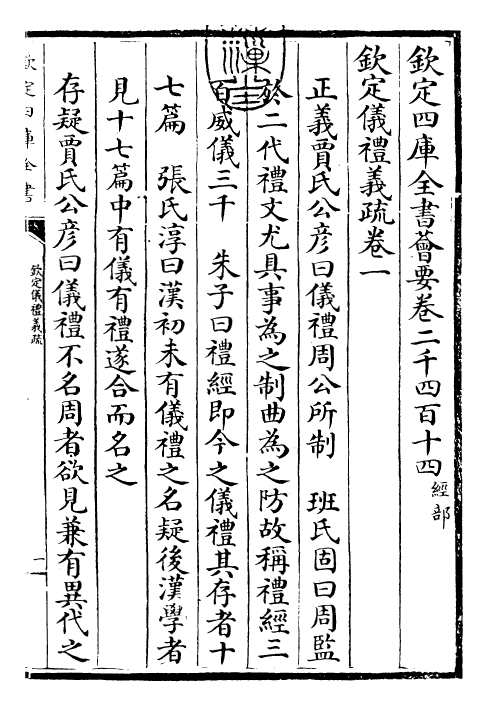 欽定四庫全書薈要卷二千四百十四 經部
欽定儀禮義疏卷一
正義賈氏公彦曰儀禮周公所制 班氏固曰周監
於二代禮文尤具事為之制曲為之防故稱禮經三
百威儀三千 朱子曰禮經即今之儀禮其存者十
七篇 張氏淳曰漢初未有儀禮之名疑後漢學者
見十七篇中有儀有禮遂合而名之
存疑賈氏公彦曰儀禮不名周者欲見兼有異代之
欽定四庫全書
欽定儀禮義疏
一